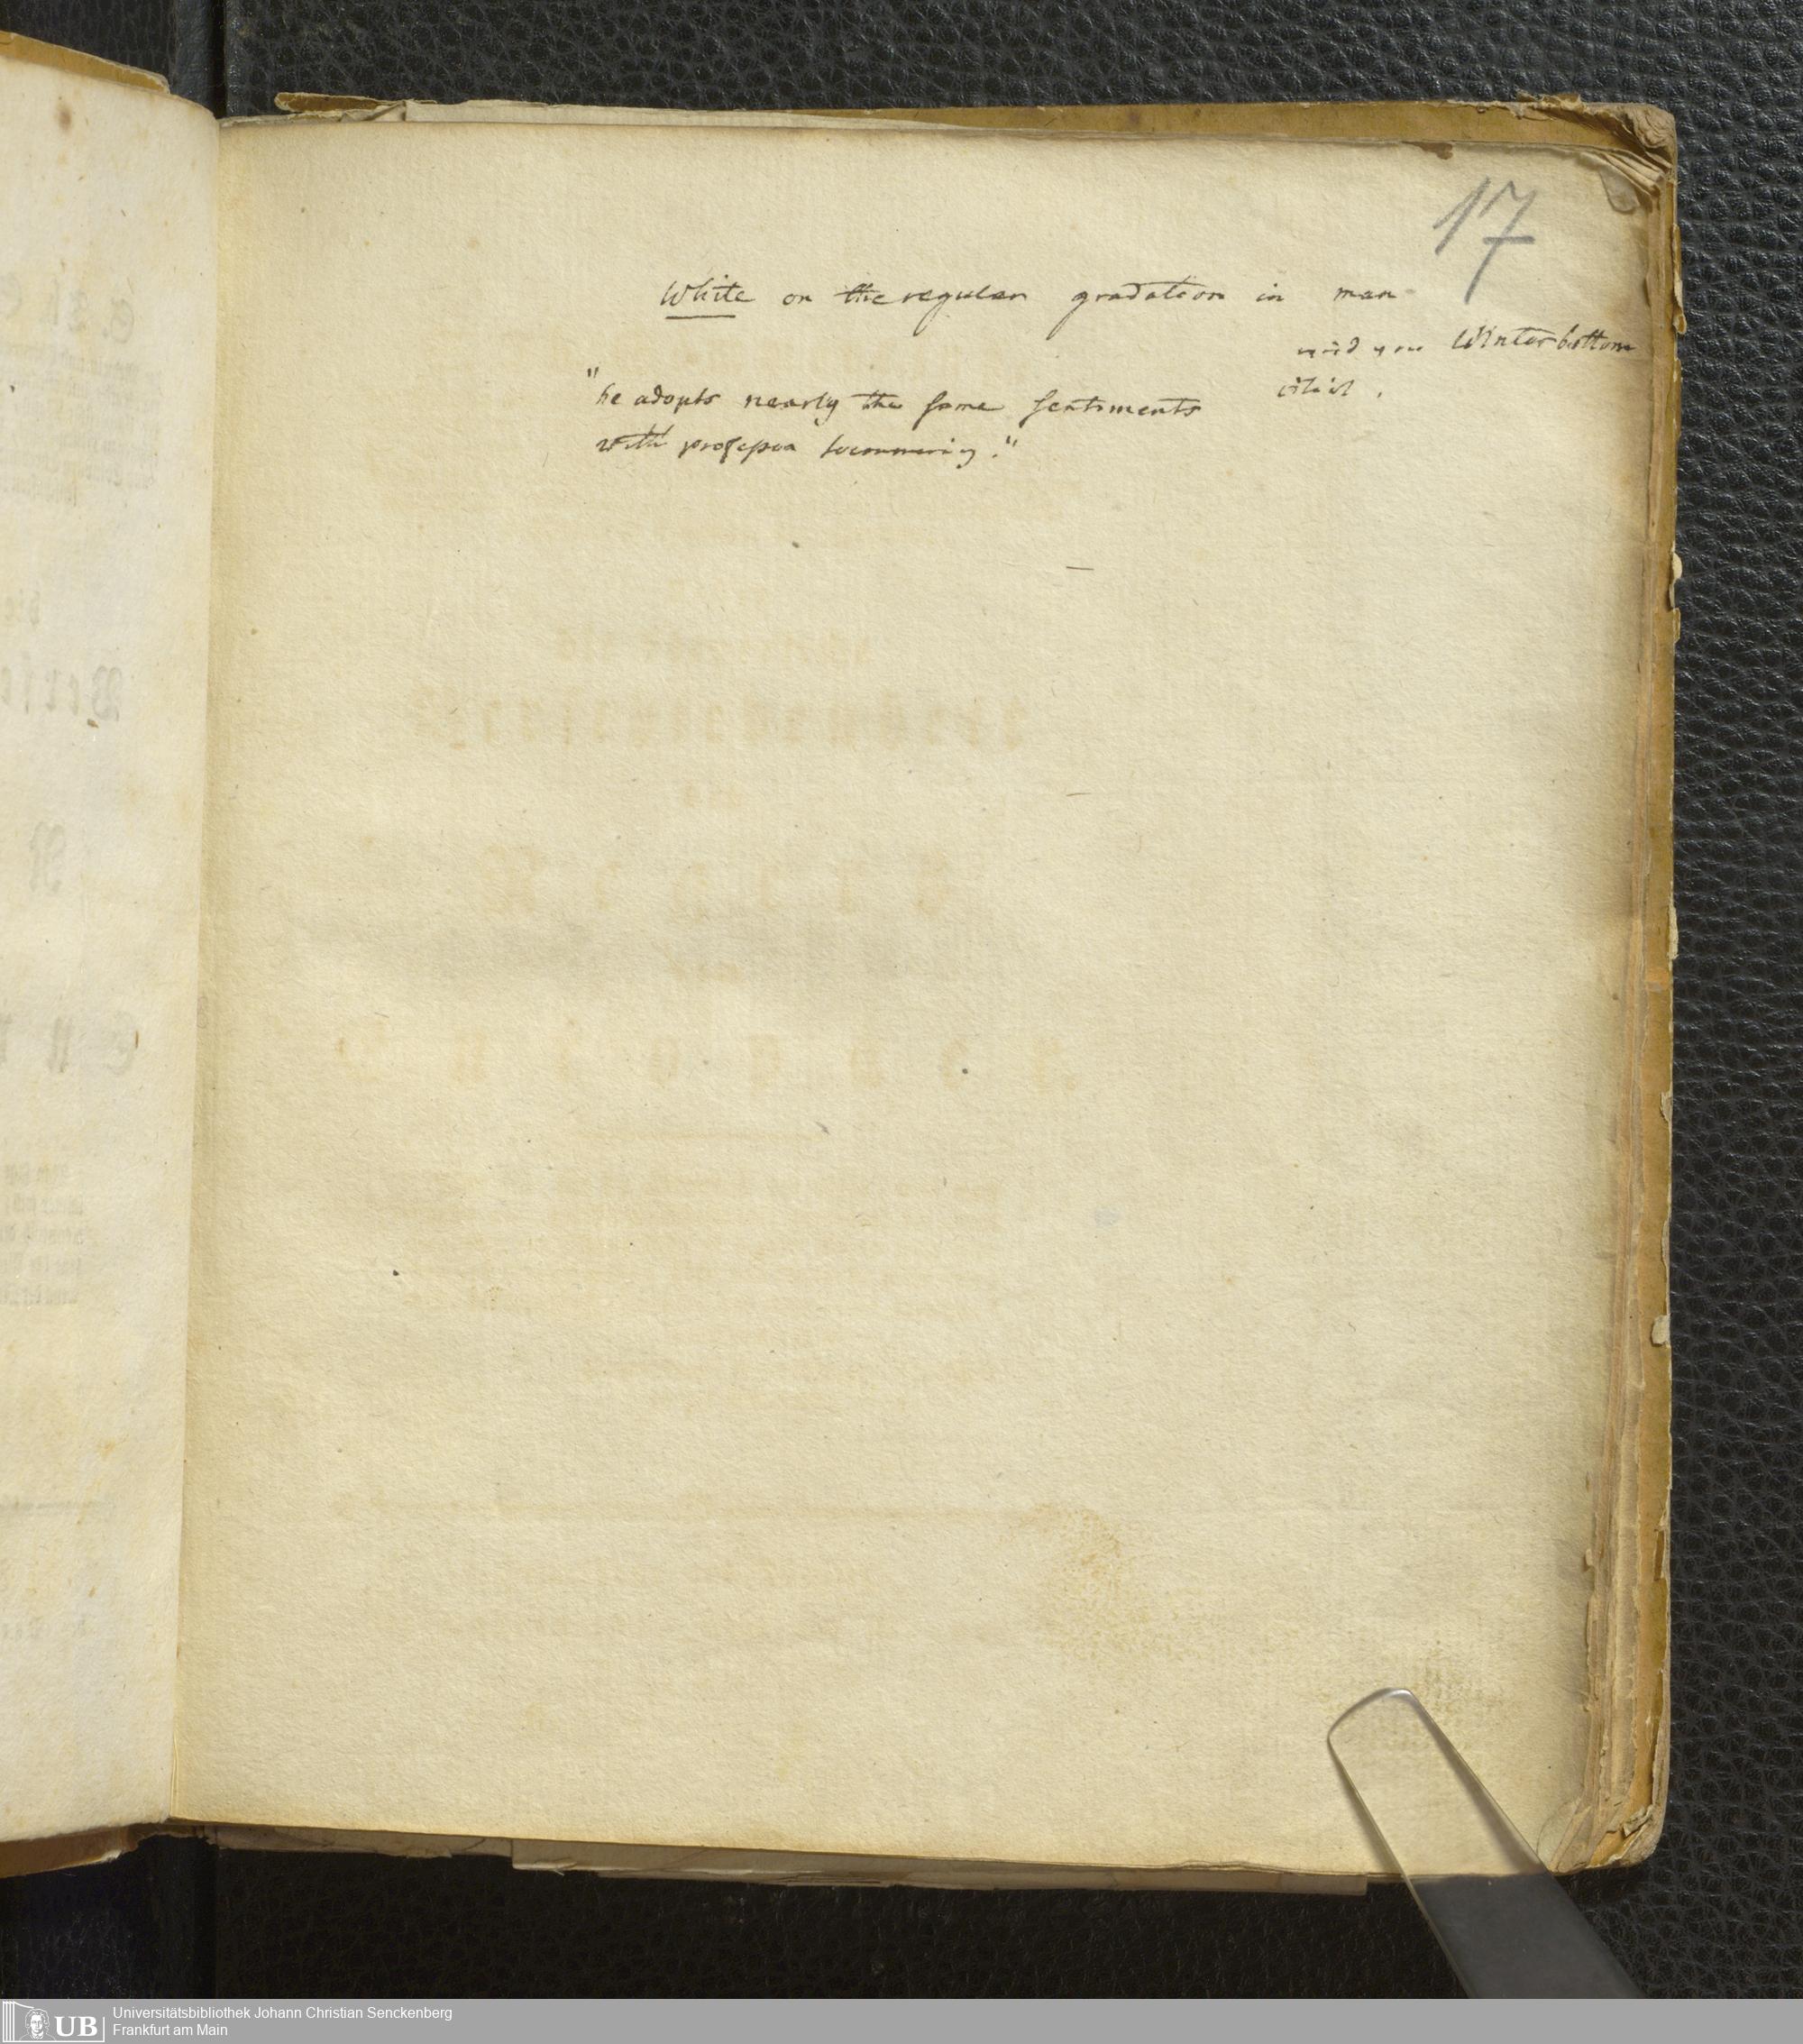 17
White on the regular gradation in man
wird von Winterbottom
citirt.
"he adopts nearly the same sentiments
with professor Soemmering."
UB
Universitätsbibliothek Johann Christian Senckenberg
Frankfurt am Main